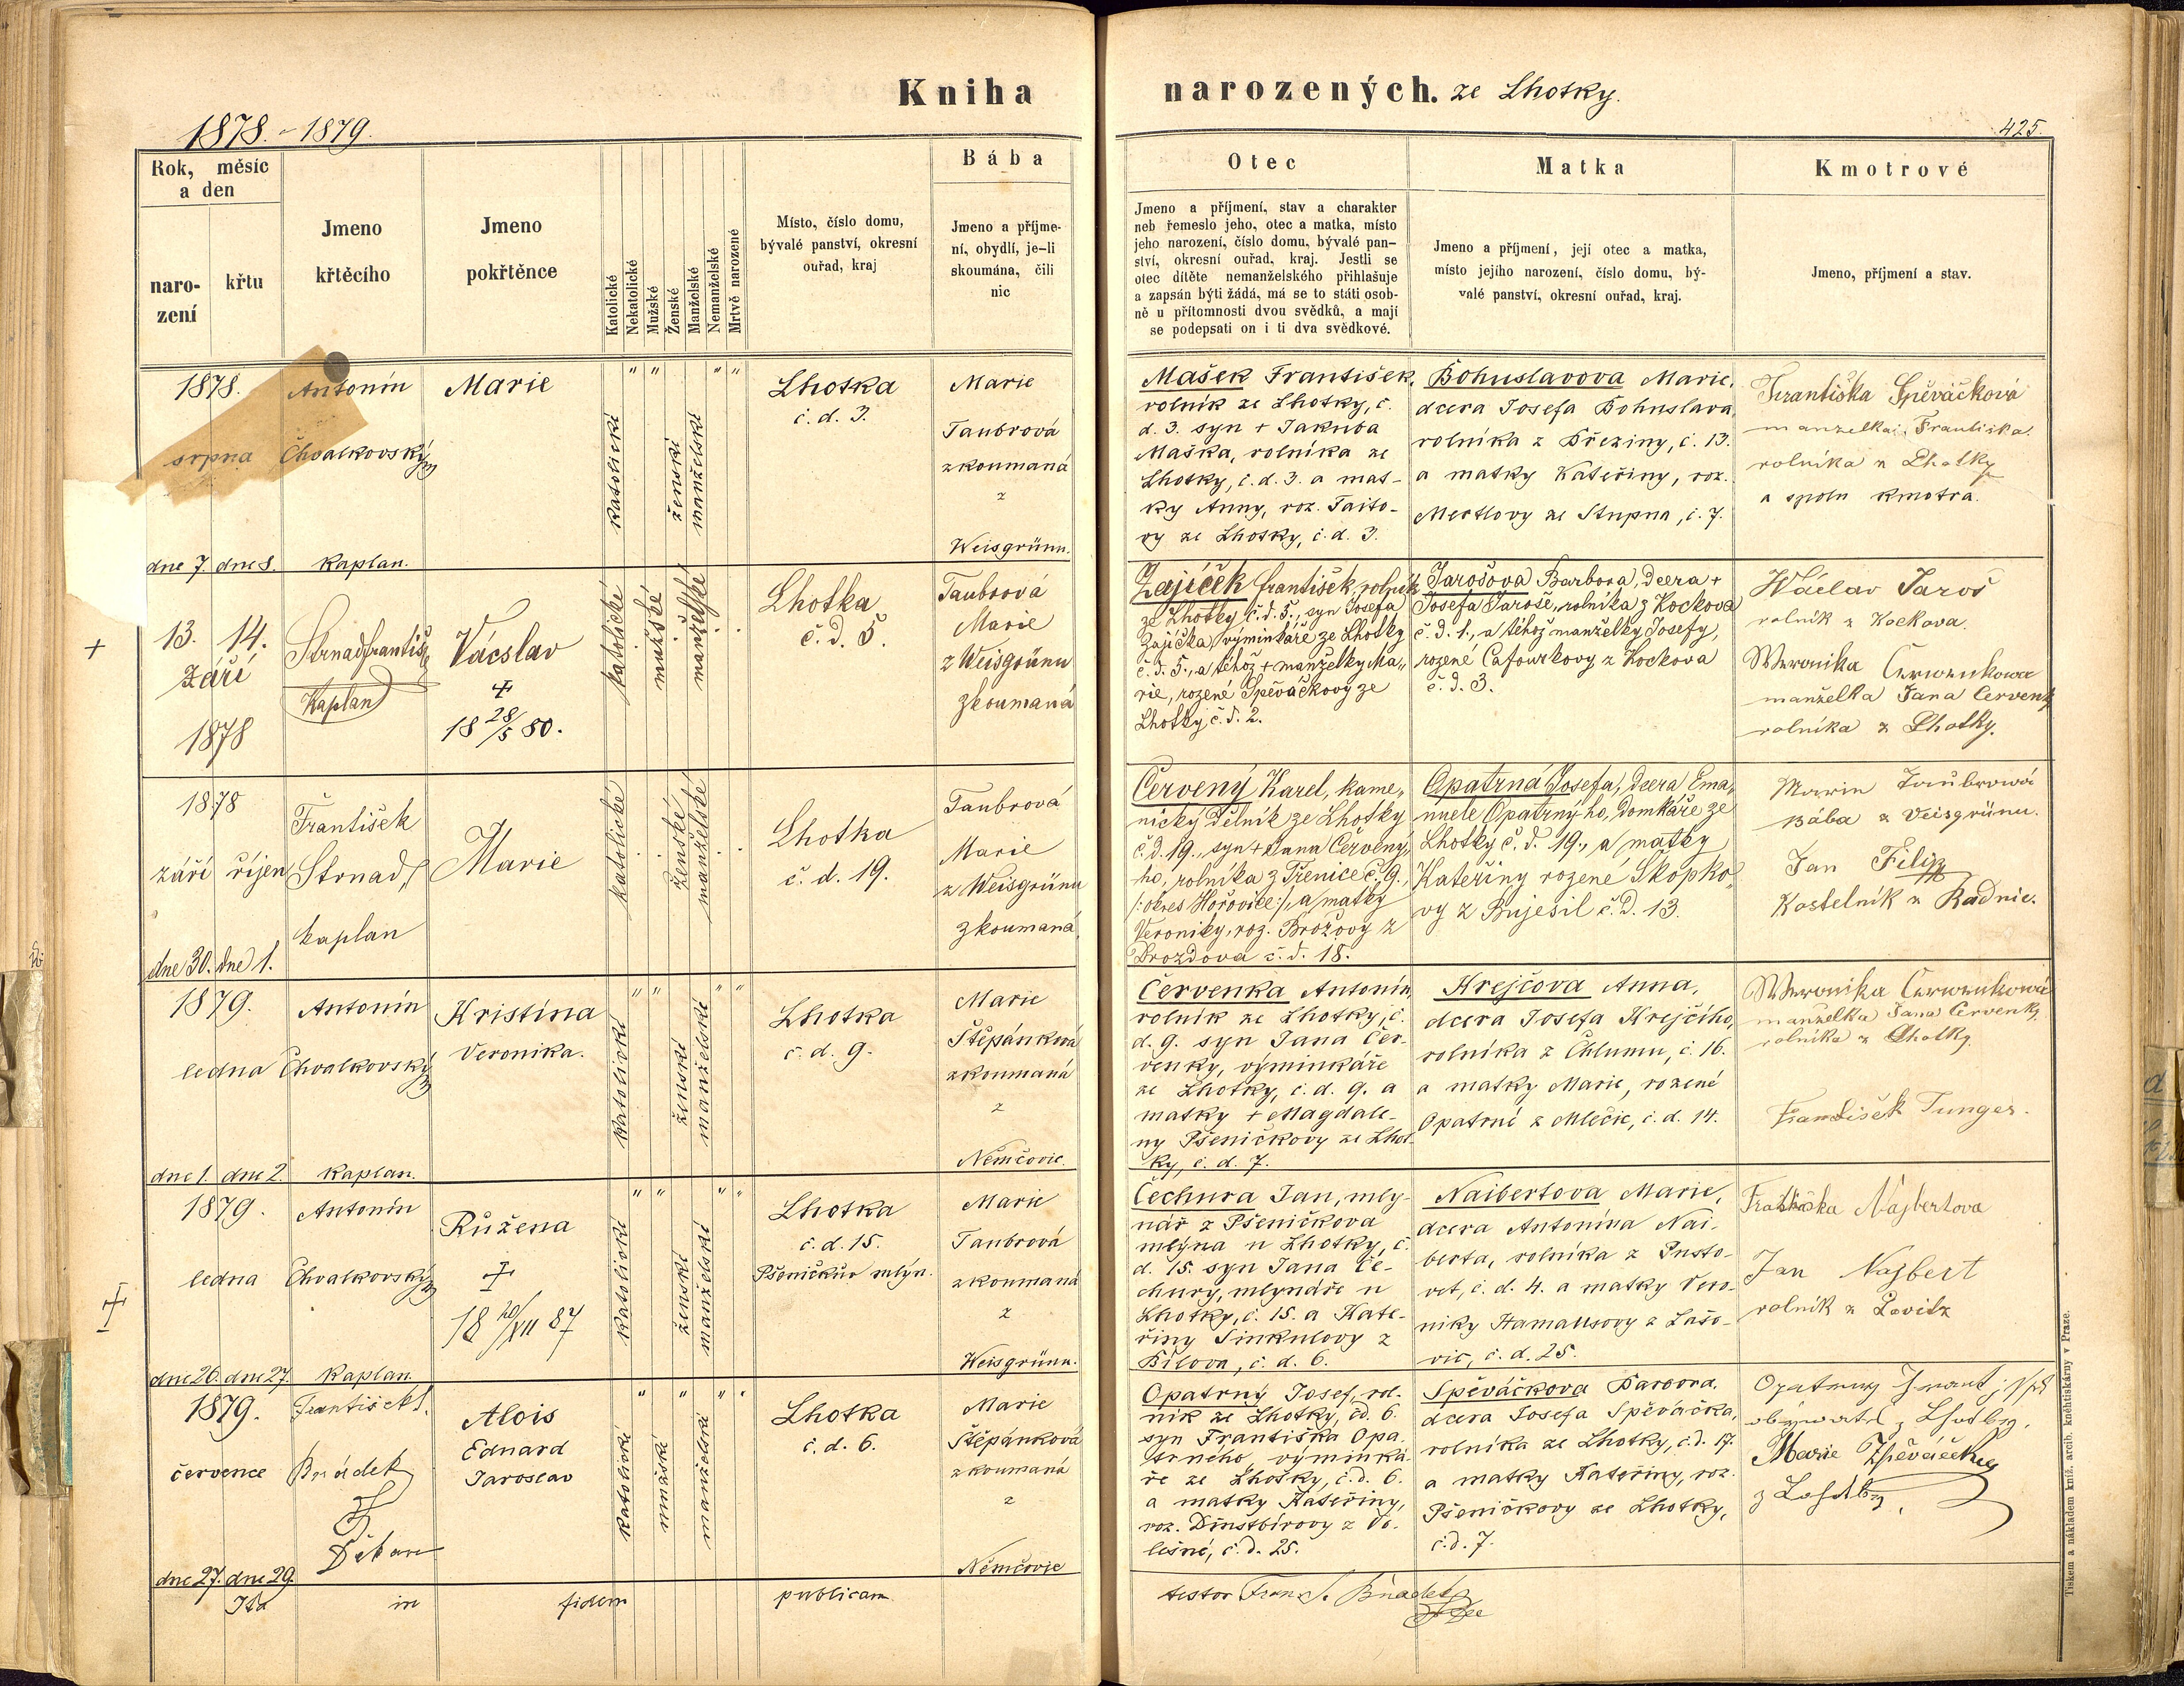 Kniha
narozených. ze Lhotky.
1878. - 1879.
425.
Rok, měsíc
a den
naro-
zení
křtu
Jmeno
křtěcího
Jmeno
pokřtěnce
Katolické
Nekatolické
Mužské
Ženské
Manželské
Nemanželské
Mrtvě narozené
Místo, číslo domu,
bývalé panství, okresní
ouřad, kraj
Bába
Jmeno a příjme-
ní, obydlí, je-li
skoumána, čili
nic
Otec
Jmeno a příjmení, stav a charakter
neb řemeslo jeho, otec a matka, místo
jeho narození, číslo domu, bývalé pan-
ství, okresní ouřad, kraj. Jestli se
otec dítěte nemanželského přihlašuje
a zapsán býti žádá, má se to státi osob-
ně u přítomnosti dvou svědků, a mají
se podepsati on i ti dva svědkové.
Matka
Jmeno a příjmení, její otec a matka,
místo jejího narození, číslo domu, bý-
valé panství, okresní ouřad, kraj.
Kmotrové
Jmeno, příjmení a stav.
1878.
srpna
dne 7. dne 8.
Antonín
Chvalkovský
Kaplan.
Marie
" " " "
katolické
ženské
manželské
Lhotka
č. d. 3.
Marie
Taubrová
zkoumaná
z
Weisgrünu.
Mašek František,
rolník ze Lhotky, č.
d. 3. syn + Jakuba
Maška, rolníka ze
Lhotky, č. d. 3. a mat-
ky Anny, roz. Taito-
vy ze Lhotky, č. d. 3.
Bohuslavova Marie,
dcera Josefa Bohuslava,
rolníka z Březiny, č. 13.
a matky Kateřiny, roz.
Mertlovy ze Stupna, č. 7.
Františka Spěváčková
manželka Františka
rolníka z Lhotky
a spolu kmotra.
+
13. 14.
Září
1878
Strnad František
Kaplan
Vácslav
+
18 28/5 80.
katolické
mužské
manželské
Lhotka
č. d. 5.
Taubrová
Marie
z Weisgrünu
zkoumaná
Zajíček František, rolník
ze Lhotky č. d. 5., syn Josefa
Zajíčka, výminkáře ze Lhotky
č. d. 5., a téhož + manželky Ma-
rie, rozené Spěváčkovy ze
Lhotky, č. d. 2.
Jarošova Barbora, dcera +
Josefa Jaroše, rolníka z Kockova
č. d. 1., a téhož manželky Josefy,
rozené Cafourkovy z Kockova
č. d. 3.
Wáclav Jaroš
rolník z Kockova.
Weronika Czerwenkowa
manželka Jana Červenky
rolníka z Lhotky.
1878
září říjen
dne 30. dne 1.
František
Strnad,
kaplan
Marie
katolické
ženské
manželské
Lhotka
č. d. 19.
Taubrová
Marie
z Weisgrünu
zkoumaná.
Červený Karel, kame-
nický dělník ze Lhotky
č. d. 19., syn + Jana Červený-
ho, rolníka z Třenice č. 9.,
/: okres Hořovice :/, a matky
Veroniky, roz. Brožovy z
Drozdova č. d. 18.
Opatrná Josefa, dcera Ema-
nuele Opatrnýho, domkáře ze
Lhotky č. d. 19., a matky
Kateřiny rozené Skopko-
vy z Bujesil č. d. 13.
Marie Taubrowá
Bába z Veisgrünu.
Jan Filip
Kostelník z Radnic.
1879.
ledna
dne 1. dne 2.
Antonín
Chvalkovský
Kaplan.
Kristína
Veronika.
" " " "
katolické
ženské
manželské
Lhotka
č. d. 9.
Marie
Štěpánková
zkoumaná
z
Němčovic.
Červenka Antonín,
rolník ze Lhotky, č.
d. 9. syn Jana Čer-
venky, výminkáře
ze Lhotky, č. d. 9. a
matky + Magdale-
ny Pšeničkovy ze Lhot-
ky, č. d. 7.
Krejčova Anna,
dcera Josefa Krejčího,
rolníka z Chlumu, č. 16.
a matky Marie, rozené
Opatrné z Mlečic, č. d. 14.
Weronika Czerwenkowá
manželka Jana Červenky,
rolníka z Lhotky.
František Tunger.
1879.
ledna
dne 26. dne 27.
Antonín
Chvalkovský
Kaplan.
Růžena
+
18 20/XII 87
" " " "
katolické
ženské
manželské
Lhotka
č. d. 15.
Pšeničkův mlýn.
Marie
Taubrová
zkoumaná
z
Weisgrünu.
Čechura Jan, mly-
nář z Pšeničkova
mlýna u Lhotky, č.
d. 15. syn Jana Če-
chury, mlynáře u
Lhotky, č. 15. a Kate-
řiny Šinkulovy z
Bílova, č. d. 6.
Naibertova Marie,
dcera Antonína Nai-
berta, rolníka z Pusto-
vet, č. d. 4. a matky Vero-
niky Hamausovy z Lašo-
vic, č. d. 25.
Františka Najbertova
Jan Najbert
rolník z Lovitz
1879.
července
dne 27. dne 29.
František S.
Bnádek
Děkan
Alois
Eduard
Jaroslav
" " " "
katolické
mužské
manželské
Lhotka
č. d. 6.
Marie
Štěpánková
zkoumaná
z
Němčovic
Opatrný Josef, rol-
ník ze Lhotky, čd. 6.
syn Františka Opa-
trného, výminká-
ře ze Lhotky, č. d. 6.
a matky Kateřiny,
roz. Dinstbírovy z Vo-
lešné, č. d. 25.
Spěváčkova Barbora,
dcera Josefa Spěváčka,
rolníka ze Lhotky, č. d. 17.
a matky Kateřiny, roz.
Pšeničkovy ze Lhotky,
č. d. 7.
Marie Zpěváčeky
Ita in fidem publicam
testor Franz S. Bnadek
Tiskem a nákladem kníž. arcib. knihtiskárny v Praze.